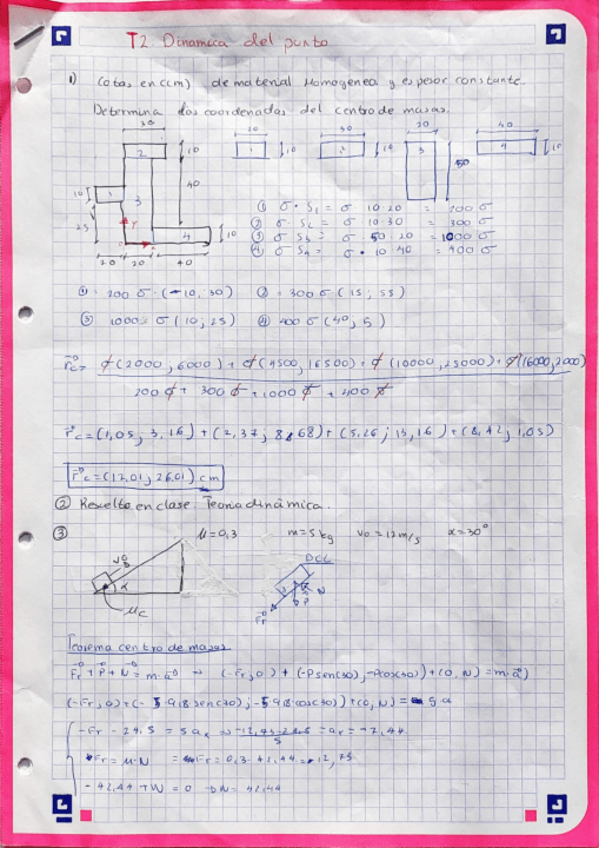 T2. Dinamica del punto
1) Cotas en (cm) de material Homogenea y espesor constante.
Determina las coordenadas del centro de masas.
30 10 30 20 40
2 10 1 10 2 10 3 50 4 10
10 1 3 40
25 Y 4 10
20 20 40
① σ · S1 = σ 10·20 = 200 σ
② σ · S2 = σ 10·30 = 300 σ
③ σ S3 = σ · 50·20 = 1000 σ
④ σ S4 = σ · 10·40 = 400 σ
① = 200 σ · (-10, 30) ② = 300 σ (15; 55)
③ 1000 σ (10; 25) ④ 400 σ (40; 5)
rc = σ(2000, 6000) + σ(4500, 16500) + σ(10000, 25000) + σ(16000, 2000)
200 σ + 300 σ + 1000 σ + 400 σ
rc = (1,05; 3,16) + (2,37; 8,68) + (5,26; 13,16) + (8,42; 1,05)
rc = (12,01; 26,01) cm
② Resuelto en clase. Teoria dinámica.
③ μ = 0,3 m = 5 kg vo = 12 m/s α = 30°
vo α DCL N
μc Fr P
Teorema centro de masas
Fr + P + N = m·a → (-Fr, 0) + (-Psen(30), -Pcos(30)) + (0, N) = m·a)
(-Fr, 0) + (-5·9,8 sen(30); -5·9,8·cos(30)) + (0, N) = 5·a
-Fr - 24,5 = 5 ax → -12,73-24,5/5 = ax = -7,44
Fr = μ·N = Fr = 0,3·42,44 = 12,73
-42,44 + N = 0 → N = 42,44